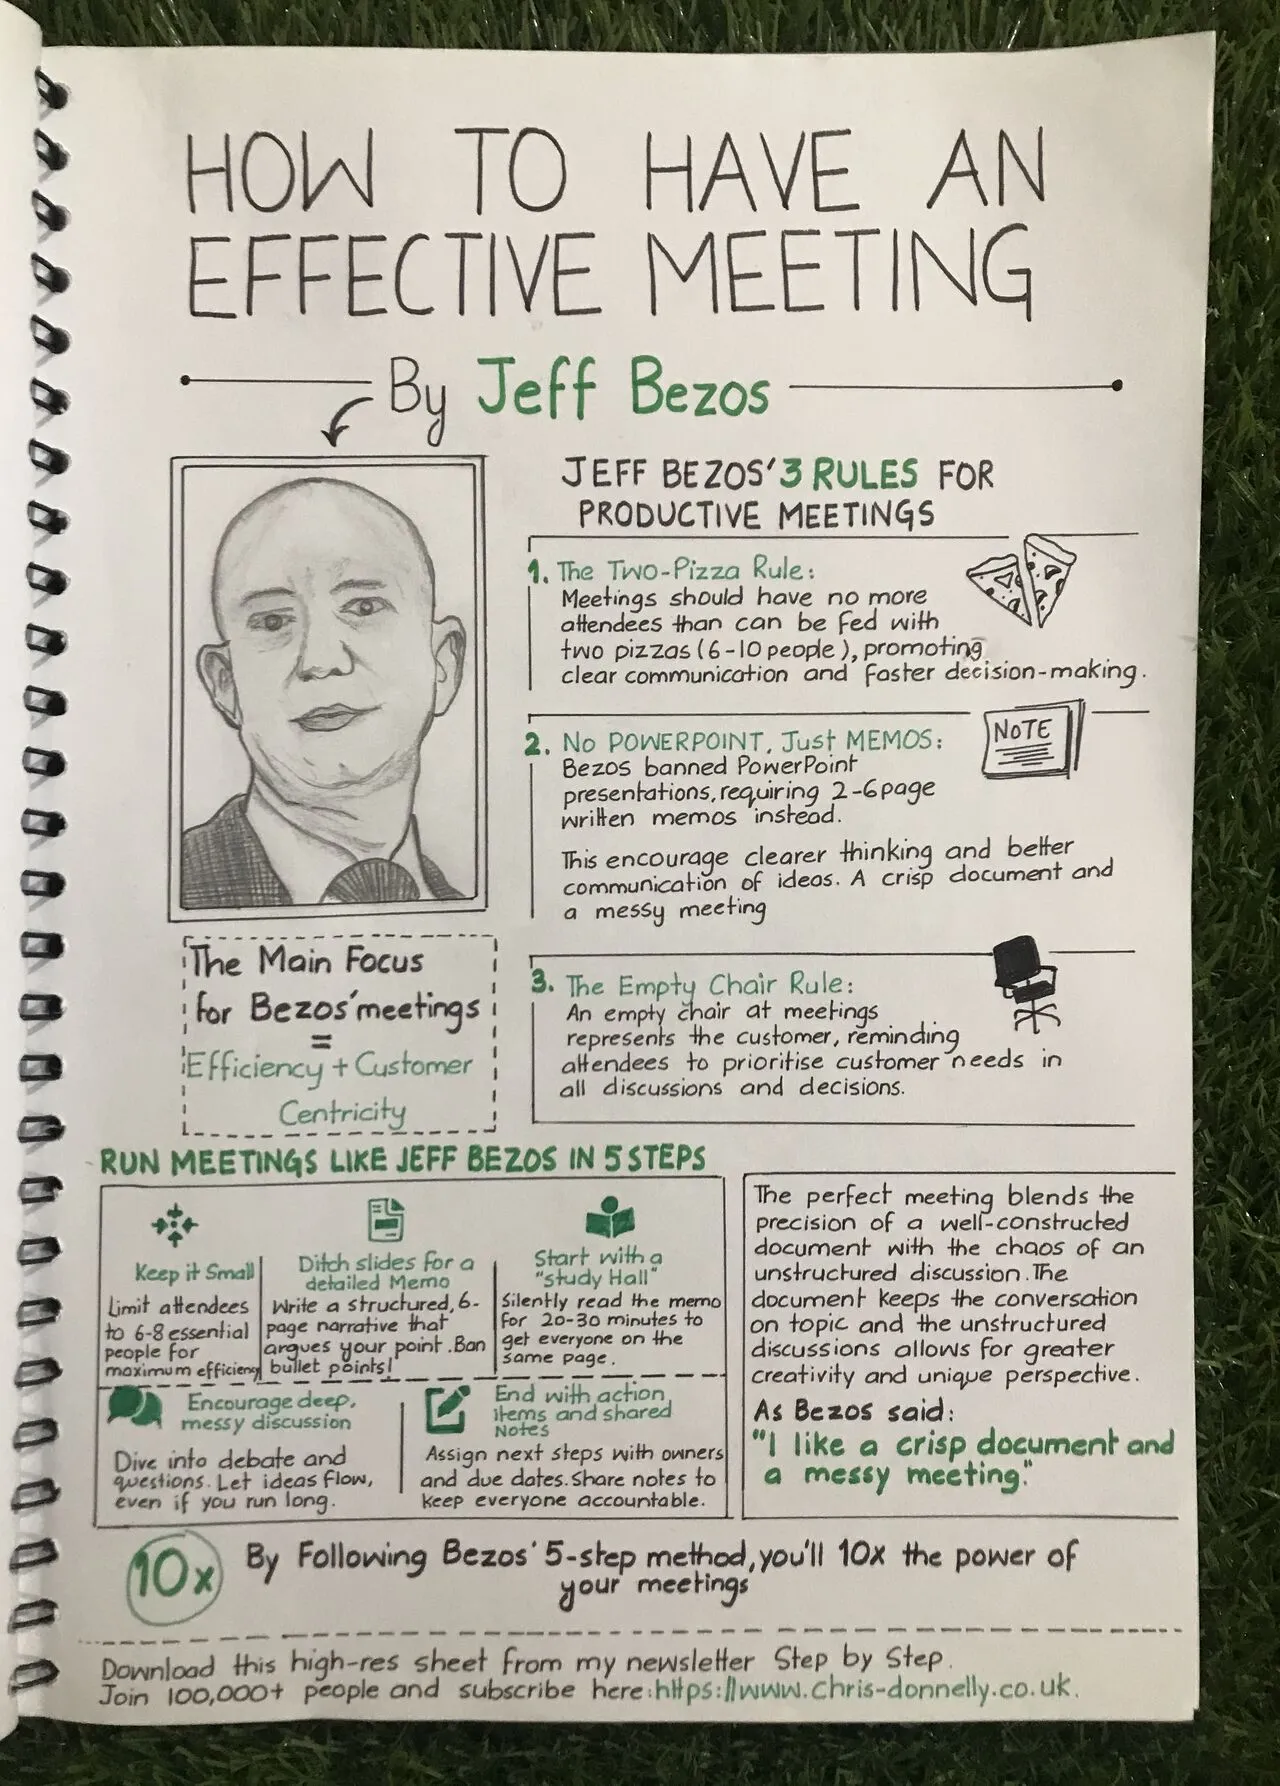 HOW TO HAVE AN
EFFECTIVE MEETING
By Jeff Bezos
JEFF BEZOS' 3 RULES FOR
PRODUCTIVE MEETINGS
1. The Two-Pizza Rule:
Meetings should have no more
attendees than can be fed with
two pizzas (6-10 people), promoting
clear communication and faster decision-making.
2. No POWERPOINT, Just MEMOS:
Bezos banned PowerPoint
presentations, requiring 2-6 page
written memos instead.
This encourage clearer thinking and better
communication of ideas. A crisp document and
a messy meeting
NOTE
3. The Empty Chair Rule:
An empty chair at meetings
represents the customer, reminding
attendees to prioritise customer needs in
all discussions and decisions.
The Main Focus
for Bezos' meetings
=
Efficiency + Customer
Centricity
RUN MEETINGS LIKE JEFF BEZOS IN 5 STEPS
Keep it Small
Limit attendees
to 6-8 essential
people for
maximum efficiency
Ditch slides for a
detailed Memo
Write a structured, 6-
page narrative that
argues your point. Ban
bullet points!
Start with a
"study Hall"
Silently read the memo
for 20-30 minutes to
get everyone on the
same page.
Encourage deep,
messy discussion
Dive into debate and
questions. Let ideas flow,
even if you run long.
End with action
items and shared
Notes
Assign next steps with owners
and due dates. Share notes to
keep everyone accountable.
The perfect meeting blends the
precision of a well-constructed
document with the chaos of an
unstructured discussion. The
document keeps the conversation
on topic and the unstructured
discussions allows for greater
creativity and unique perspective.
As Bezos said:
"I like a crisp document and
a messy meeting."
10x
By Following Bezos' 5-step method, you'll 10x the power of
your meetings
Download this high-res sheet from my newsletter Step by Step.
Join 100,000+ people and subscribe here: https://www.chris-donnelly.co.uk.